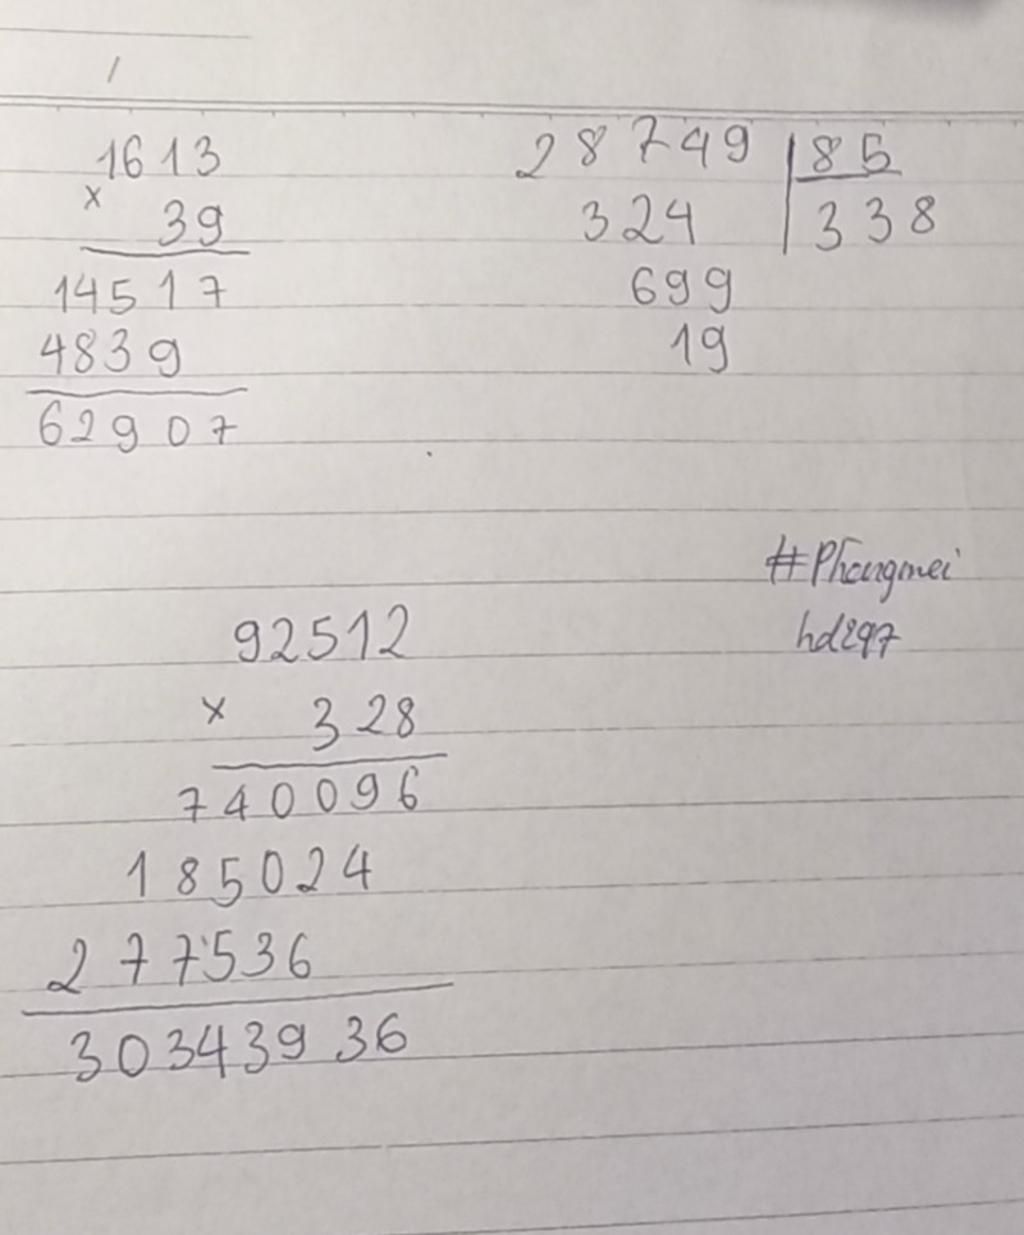 1613
×
39
14517
4839
62907
28749 85
324 338
699
19
#Phongmei
hd297
92512
× 328
740096
185024
277536
30343936